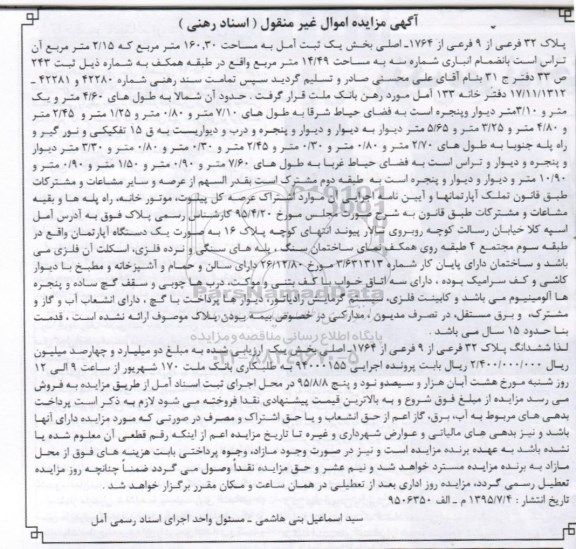 آگهی مزایده اموال غیر منقول ( اسناد رهنی )
پلاک ۳۲ فرعی از ۹ فرعی از ۱۷۶۴ـ اصلی بخش یک ثبت آمل به مساحت ۱۶۰,۳۰ متر مربع که ۲/۱۵ متر مربع آن
تراس است بانضمام انباری شماره سه به مساحت ۱۴/۴۹ متر مربع واقع در طبقه همکف به شماره ذیل ثبت ۲۴۳
ص ۳۳ دفتر ج ۳۱ بنام آقای علی محسنی صادر و تسلیم گردید سپس تمامت سند رهنی شماره ۴۲۲۸۰ و ۴۲۲۸۱ ـ
۱۷/۱۱/۱۳۱۲ دفتر خانه ۱۳۳ آمل مورد رهن بانک ملت قرار گرفت . حدود آن شمالا به طول های ۴/۶۰ متر و یک
متر و ۳/۱۰متر دیوار وپنجره است به فضای حیاط شرقا به طول های ۷/۱۰ متر و ۰/۸۰ متر و ۱/۲۵ متر و ۲/۴۵ متر
و ۴/۸۰ متر و ۳/۲۵ متر و ۵/۶۵ متر دیوار به دیوار و دیوار و پنجره و درب و دیواریست به ق ۱۵ تفکیکی و نور گیر و
راه پله جنوبا به طول های ۲/۷۰ متر و ۰/۸۰ متر و ۰/۳۰ متر و ۲/۴۵ متر و ۰/۳۰ متر و ۰/۸۰ متر و ۳/۳۰ متر دیوار
و پنجره و دیوار و تراس است به فضای حیاط غربا به طول های ۷/۶۰ متر و ۰/۹۰ متر و ۱/۵۰ متر و ۰/۹۰ متر و
۱۰/۹۰ متر و دیوار و دیوار و پنجره است به طبقه دوم مشترک است بقدر السهم از عرصه و سایر مشاعات و مشترکات
طبق قانون تملک آپارتمانها و آیین نامه اجرایی آن موارد اشتراک عرصه کل پیلوت، موتور خانه، راه پله ها و بقیه
مشاعات و مشترکات طبق قانون به شرح صورت مجلس مورخ ۹۵/۴/۲۰ کارشناس رسمی پلاک فوق به آدرس آمل
اسپه کلا خیابان رسالت کوچه روبروی تالار پیوند انتهای کوچه پلاک ۱۶ به صورت یک دستگاه آپارتمان واقع در
طبقه سوم مجتمع ۴ طبقه روی همکف نمای ساختمان سنگ ، پله های سنگی و نرده فلزی، اسکلت آن فلزی می
باشد و ساختمان دارای پایان کار شماره ۳/۶۳۱۳۱۳ مورخ ۲۶/۱۲/۸۰ دارای سالن و حمام و آشپزخانه و مطبخ با دیوار
کاشی و کف سرامیک بوده ، دارای سه اتاق خواب با کف بتنی و موکت، درب ها چوبی و سقف گچ ساده و پنجره
ها آلومینیوم می باشد و کابینت فلزی، سیستم گرمایش رادیاتور دیوار ها پرداخت با گچ ، دارای انشعاب آب و گاز و
مشترک، و برق مستقل، در تصرف مدیون ، مدارکی در خصوص بیمه بودن پلاک موصوف ارائه نشده است ، قدمت
بنا حدود ۱۵ سال می باشد .
لذا ششدانگ پلاک ۳۲ فرعی از ۹ فرعی از ۱۷۶۴ـ اصلی بخش یک ارزیابی شده به مبلغ دو میلیارد و چهارصد میلیون
ریال ۲/۴۰۰/۰۰۰/۰۰۰ ریال بابت پرونده اجرایی ۹۴۰۰۰۱۵۵ به طلبکاری بانک ملت ۱۷۰ شهریور از ساعت ۹ الی ۱۲
روز شنبه مورخ هشت آبان هزار و سیصدو نود و پنج ۹۵/۸/۸ در محل اجرای ثبت اسناد آمل از طریق مزایده به فروش
می رسد مزایده از مبلغ فوق شروع و به بالاترین قیمت پیشنهادی نقدا فروخته می شود لازم به ذکر است پرداخت
بدهی های مربوط به آب، برق، گاز اعم از حق انشعاب و یا حق اشتراک و مصرف در صورتی که مورد مزایده دارای آنها
باشد و نیز بدهی های مالیاتی و عوارض شهرداری و غیره تا تاریخ مزایده اعم از اینکه رقم قطعی آن معلوم شده یا
نشده باشد به عهده برنده مزایده است و نیز در صورت وجود مازاد، وجوه پرداختی بابت هزینه های فوق از محل
مازاد به برنده مزایده مسترد خواهد شد و نیم عشر و حق مزایده نقداً وصول می گردد ضمناً چنانچه روز مزایده
تعطیل رسمی گردد، مزایده روز اداری بعد از تعطیلی در همان ساعت و مکان مقرر برگزار خواهد شد .
تاریخ انتشار : ۱۳۹۵/۷/۴ م ـ الف ۹۵۰۶۳۵۰
سید اسماعیل بنی هاشمی ـ مسئول واحد اجرای اسناد رسمی آمل
پایگاه اطلاع رسانی مناقصه و مزایده